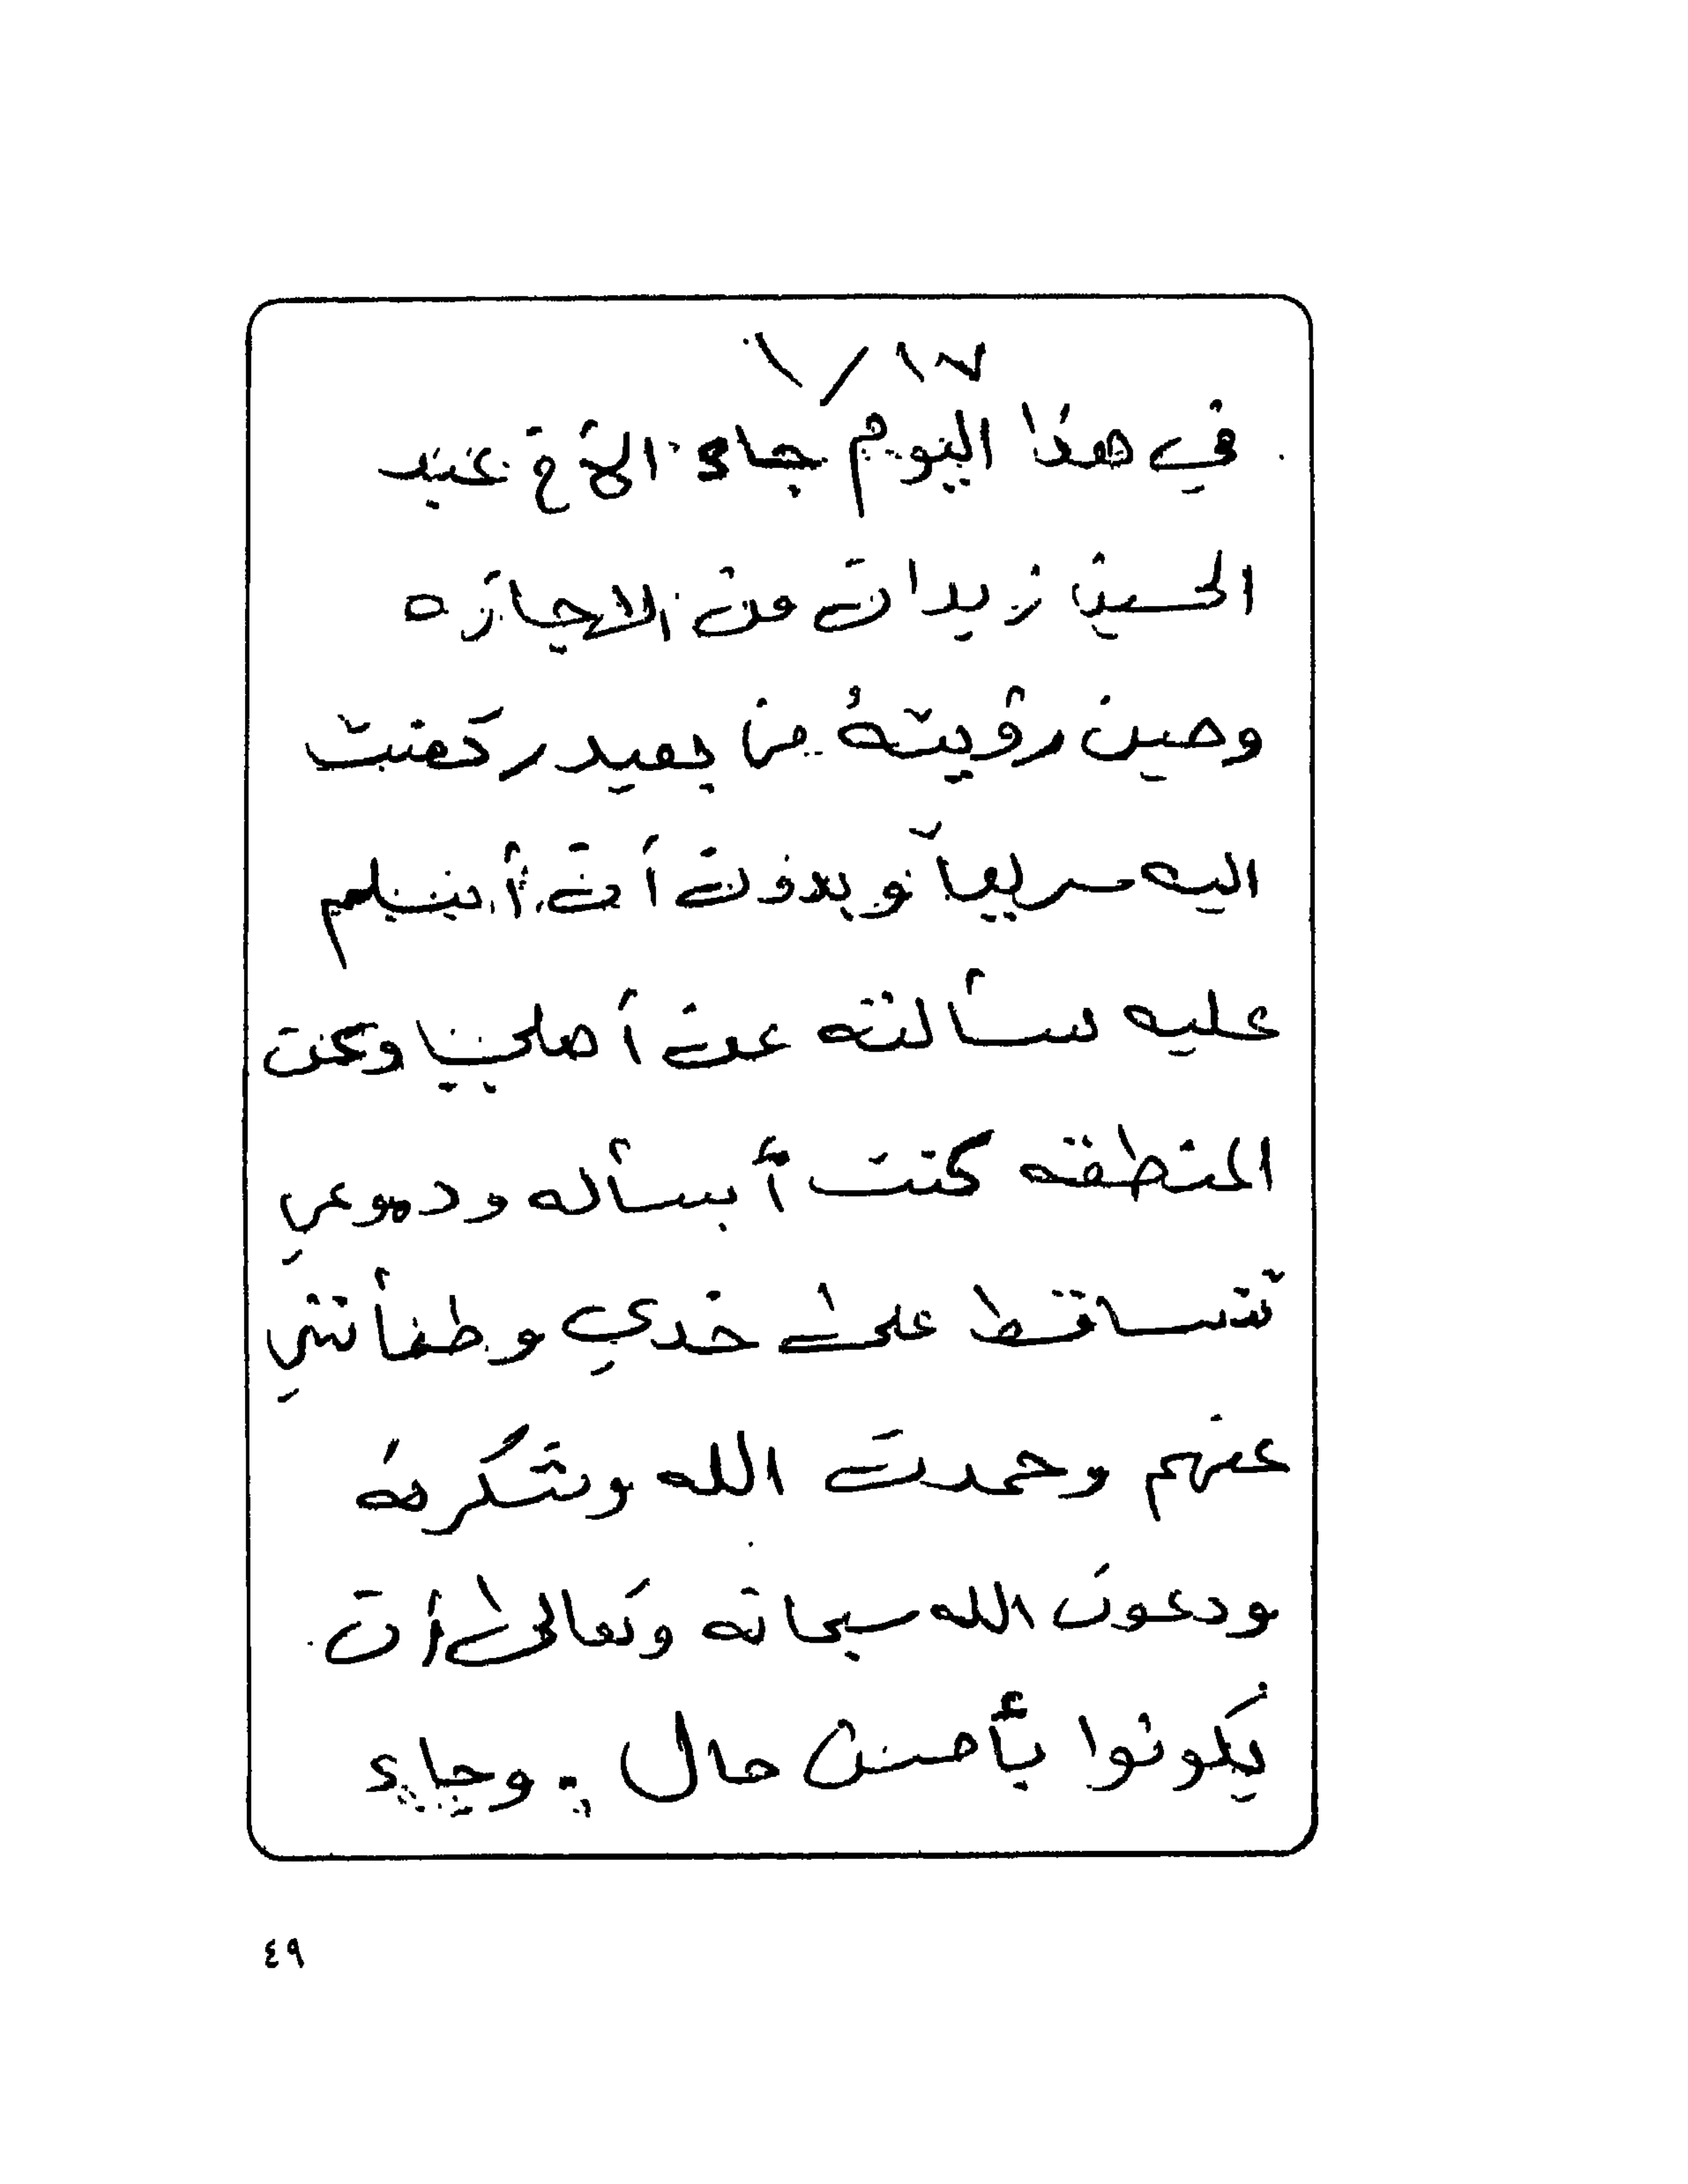 ١/١٧
في هذا اليوم جاء الأخ عبد
الحسين زيدان من الاجازه
وحين رؤيتهُ من بعيد ركضت
اليه سريعاً وبدون أن أسلم
عليه سألته عن أهلي وعن
المنطقه كنت أسأله ودموعي
تتساقط على خدي وطمأنني
عنهم وحمدت الله وشكرتهُ
ودعوت الله سبحانه وتعالى أن
يكونوا بأحسن حال . وجاء
٤٩